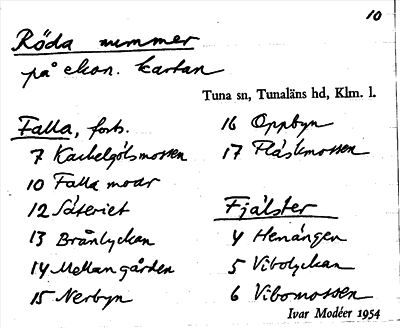 10
Röda nummer
på ekon. kartan
Tuna sn, Tunaläns hd, Klm. l.
Falla, forts.
7 Kackelgölsmossen
10 Falla moar
12 Säteriet
13 Brånlyckan
14 Mellangården
15 Nerbyn
16 Oppbyn
17 Plåskmossen
Fjälster
4 Hemängen
5 Vibolyckan
6 Vibomossen
Ivar Modéer 1954